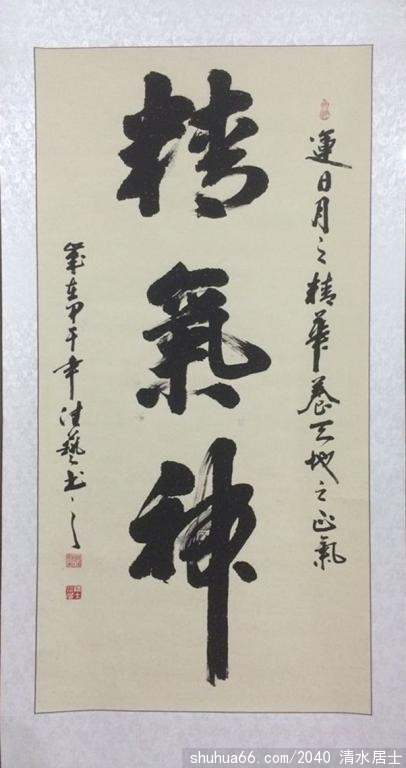 運日月之精華養天地之正氣
精氣神
歲在甲午年 藝書
shuhua66.com/2040 清水居士